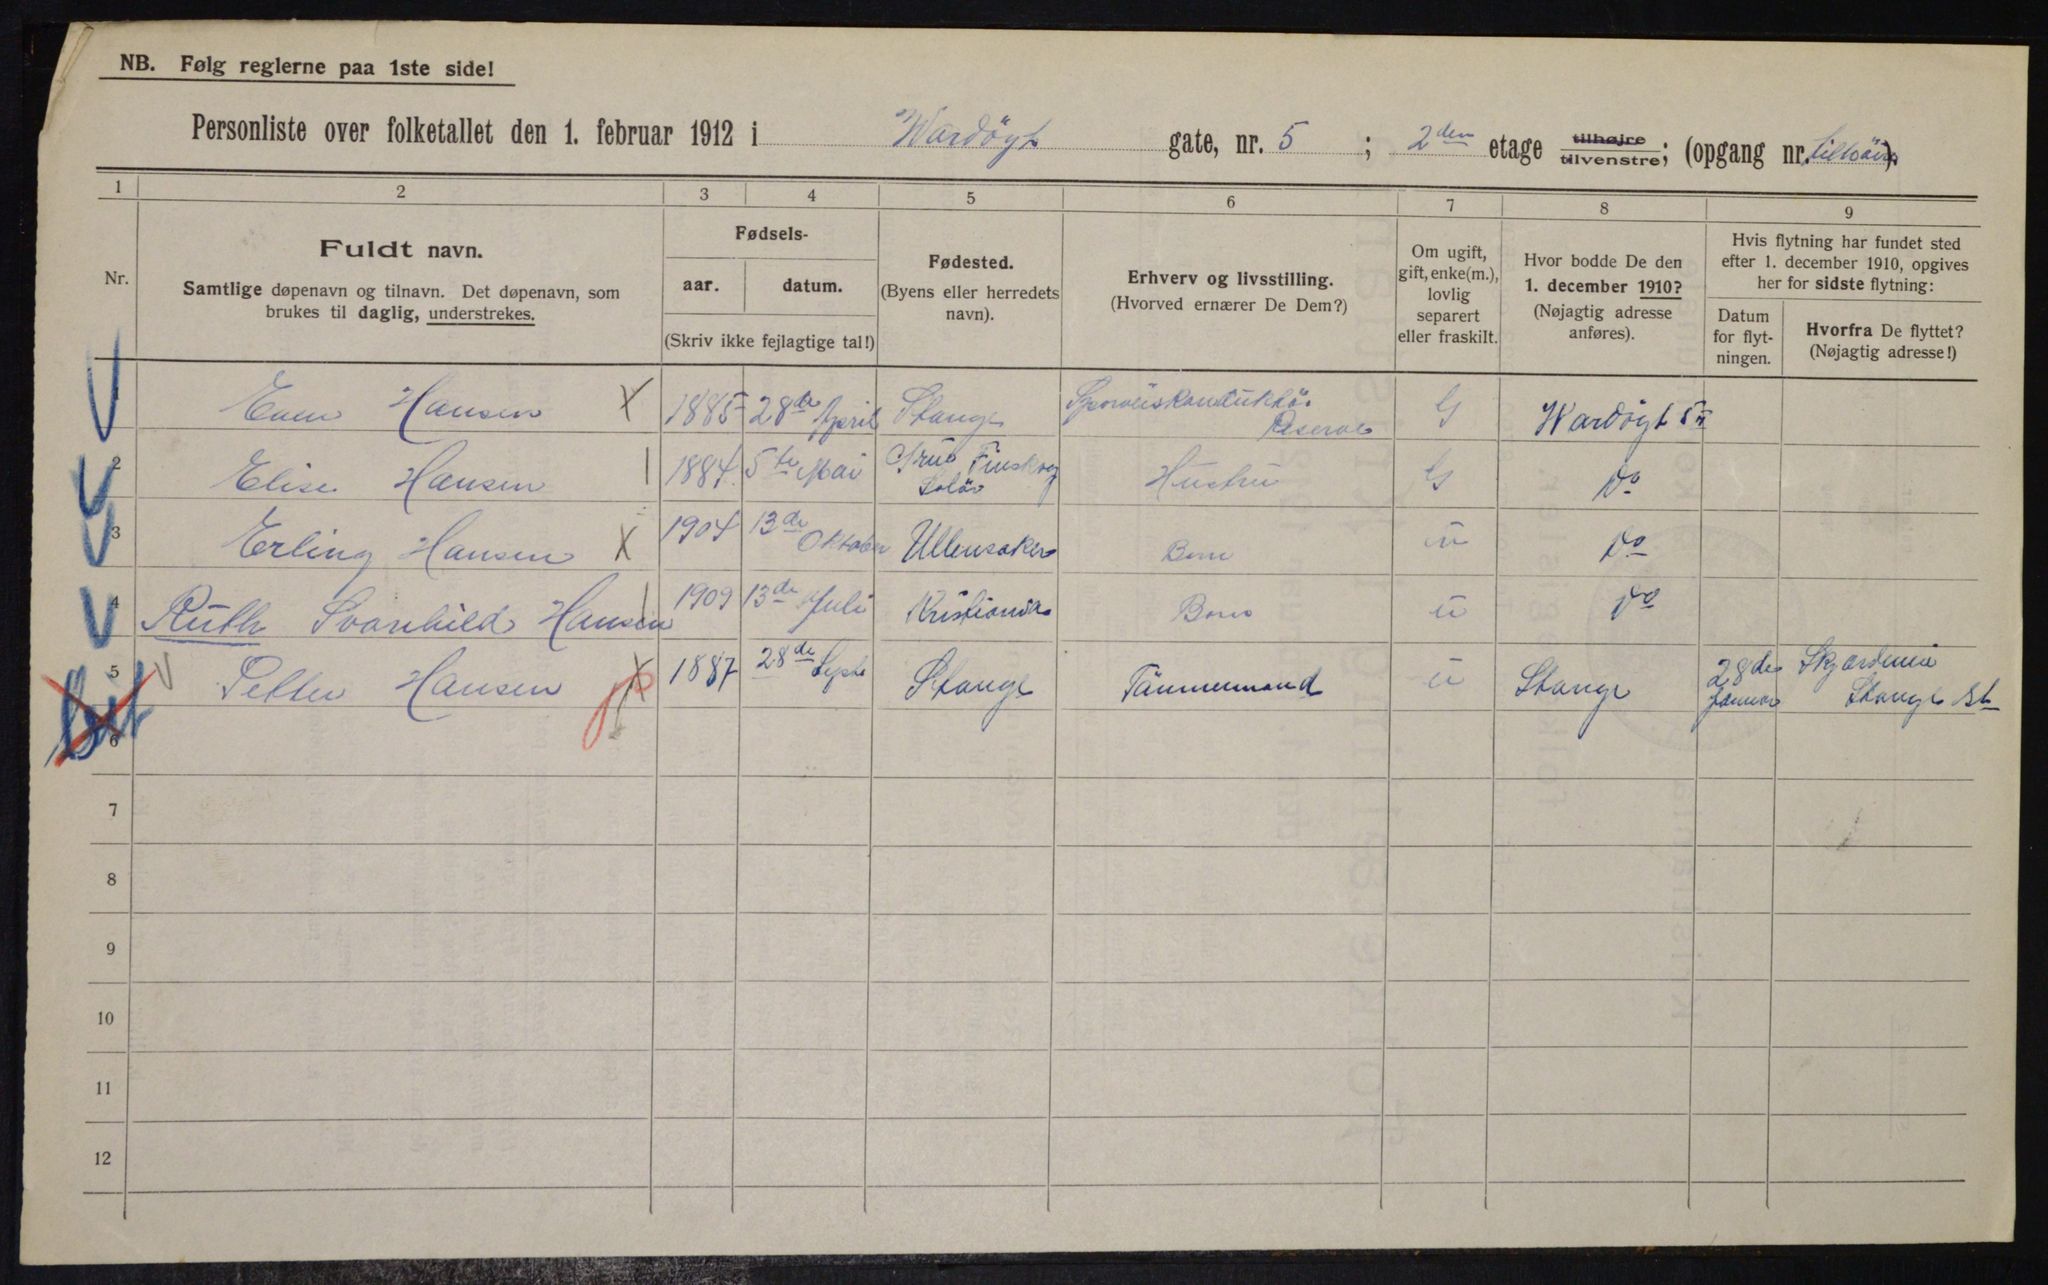 NB. Følg reglerne paa 1ste side!
Personliste over folketallet den 1. februar 1912 i Wardögt gate, nr. 5 ; 2den etage tilhøjre tilvenstre; (opgang nr. ).
1 2 3 4 5 6 7 8 9
Nr.
Fuldt navn.
Samtlige døpenavn og tilnavn. Det døpenavn, som
brukes til daglig, understrekes.
Fødsels-
aar. datum.
(Skriv ikke fejlagtige tal!)
Fødested.
(Byens eller herredets
navn).
Erhverv og livsstilling.
(Hvorved ernærer De Dem?)
Om ugift,
gift, enke(m.),
lovlig
separert
eller fraskilt.
Hvor bodde De den
1. december 1910?
(Nøjagtig adresse
anføres).
Hvis flytning har fundet sted
efter 1. december 1910, opgives
her for sidste flytning:
Datum
for flyt-
ningen.
Hvorfra De flyttet?
(Nøjagtig adresse!)
Even Hansen X 1885 28de April Stange Sporveiskonduktör Reserve G Wardögt 5 II
2 Elise Hansen 1884 5te Mai Grue Finskog Solör Hustru G Do
3 Erling Hansen X 1904 13de Oktober Ullensaker Barn ū Do
4 Ruth Svanhild Hansen 1909 13de Juli Kristiania Barn ū Do
5 Petter Hansen X 1887 28de Septe Stange Tömmermand ū Stange 28de Januar Stange St
6
7
8
9
10
11
12